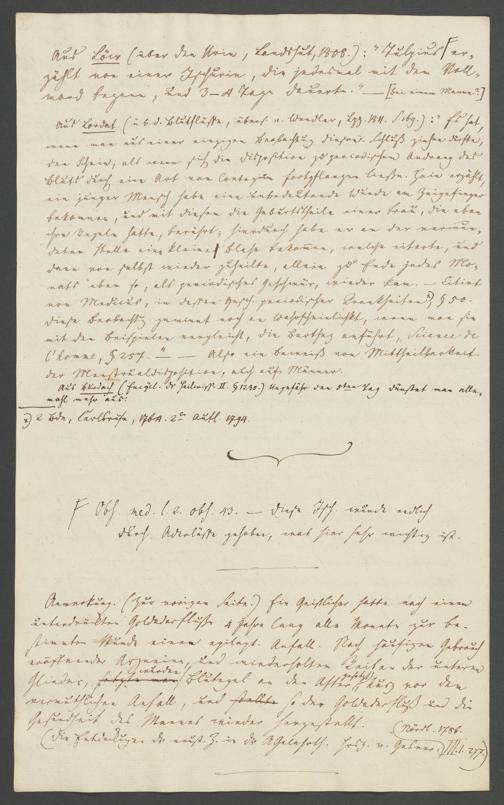 Aus Löw (über den Urin, Landshut, 1808.): "Tulpius er-
zählt von einer Ischurie, die jedesmal mit dem Voll-
mond begann, und 3–4 Tage dauerte." — [bei einem Manne?]
Aus Lordat (üb. d. Blutflüsse, übers. v. Wendler, Lpz. 1811.): "Es hat,
wenn man aus einer einzigen Beobachtung diesen Schluß ziehen dürfte,
den Schein, als wenn sich die Disposition zu periodischem Andrang des
Bluts durch eine Art von Contagium fortpflanzen ließe. erzählt,
ein junger Mensch habe eine unbedeutende Wunde am Zeigefinger
bekommen, und mit diesem die Geburtstheile einer Frau, die eben
ihre Regeln hatte, berührt; hierdurch habe er an der verwun-
deten Stelle eine kleine Blase bekommen, welche eiterte, und
dann von selbst wieder zuheilte, allein zu Ende jedes Mo-
nats eben so, als periodisches Geschwür, wieder kam. — Citirt
von Medicus, in dessen Gesch. periodischer Krankheiten, § 50.
Diese Beobachtung gewinnt noch an Wahrscheinlichkeit, wenn man sie
mit den Beispielen vergleicht, die Barthez anführt, Science de
l'homme, § 257." — Also ein Beweis von Mittheilbarkeit
der Menstrualdisposition, auch auf Männer.
Aus Burdach (Encycl. der Heilwiss. II. § 1290.) Ungefähr den Tag dünstet man alle-
mahl mehr aus.
2 Bde, Carlsruhe, 1764. 2te Aufl. 1794.
F Obs. med. l. 2. obs. 43. — Diese Isch. wurde endlich
durch Aderlässe gehoben, was hier sehr wichtig ist.
Anmerkung. (Zur vorigen Seite.) Ein Geistlicher hatte nach einem
unterdrückten Goldaderflusse 4 Jahre lang alle Monate zur be-
stimmten Stunde einen epilept. Anfall. Nach häufigem Gebrauch
eröffnender Arzneien, und wiederholtem Reiben der untern
Glieder, wurden Blutegel an den After gesetzt, kurz vor dem
vermuthlichen Anfall, und so der Goldaderfluß und die
Gesundheit des Mannes wieder hergestellt.
(Die Entdeckungen der neust. Z. in der AGelahrth. v. Gesner. (Nördl. 1786. III. 1. 277.)